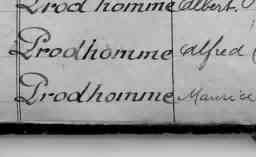 Prodhomme Albert.
Prodhomme Alfred
Prodhomme Maurice